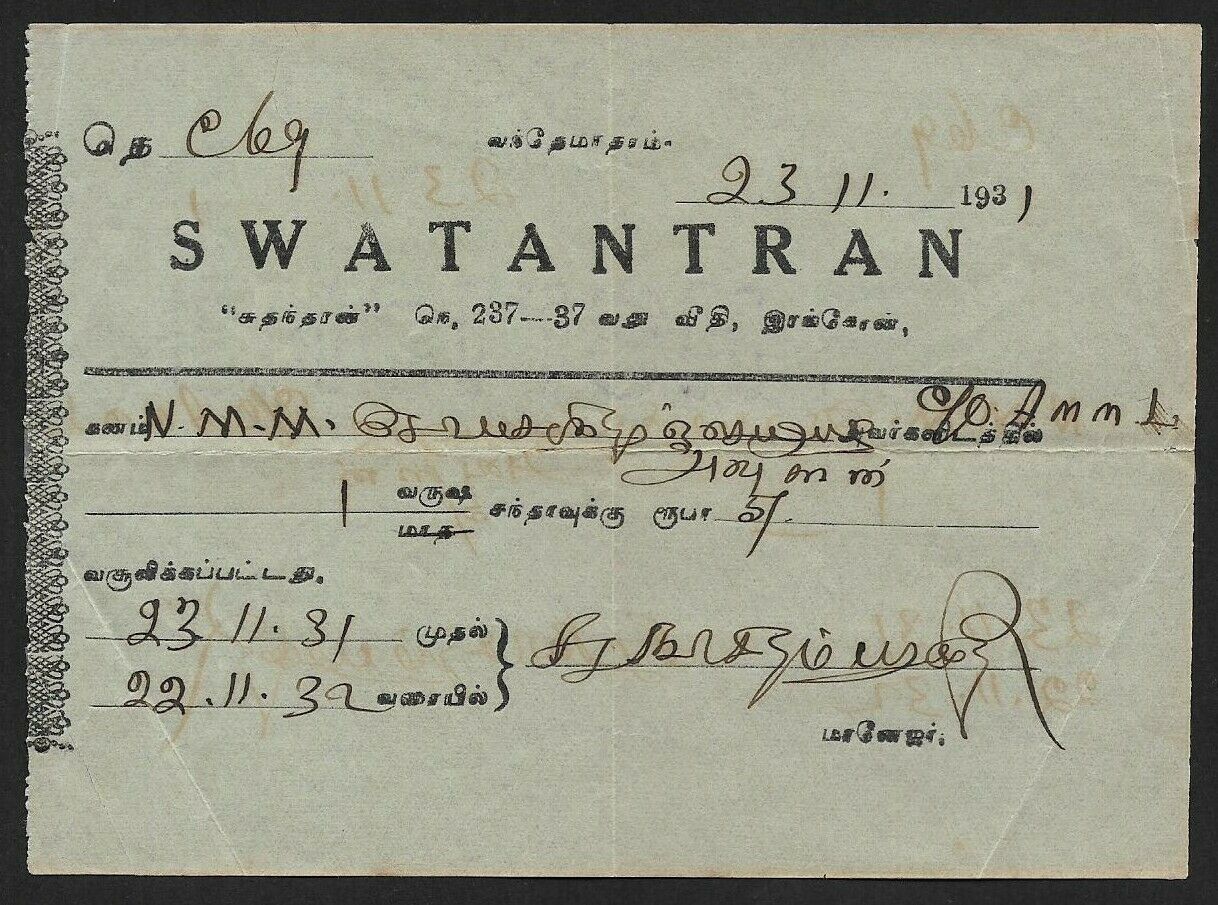 நெ C 69
வந்தேமாதரம்.
23 11. 1931
SWATANTRAN
“சுதந்தரன்” நெ, 237---37 வது வீதி, இரங்கோன்,
கனம் N. M. M. அவர்களிடத்தில்
1 வருஷ
மாத
சந்தாவுக்கு ரூபா
வசூலிக்கப்பட்டது.
23 11. 31 முதல்
22.11.32 வரையில்
மானேஜர்.